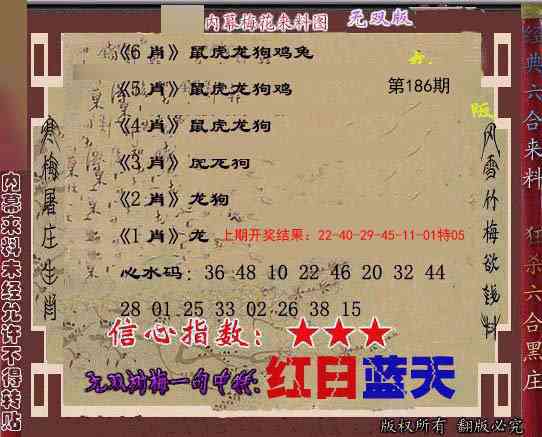 内幕梅花来料图 无双版
《6 肖》鼠虎龙狗鸡兔
《5 肖》鼠虎龙狗鸡
第186期
《4 肖》鼠虎龙狗
《3 肖》虎龙狗
《2 肖》龙狗
《1 肖》龙
上期开奖结果：22-40-29-45-11-01特05
心水码：36 48 10 22 46 20 32 44
28 01 25 33 02 26 38 15
信心指数：★★★
无双剑梅一句中特:红日蓝天
版权所有 翻版必究
寒梅屠庄生肖
内幕来料未经允许不得转贴
风雪竹梅欲钱料
经典六合来料
狂杀六合黑庄